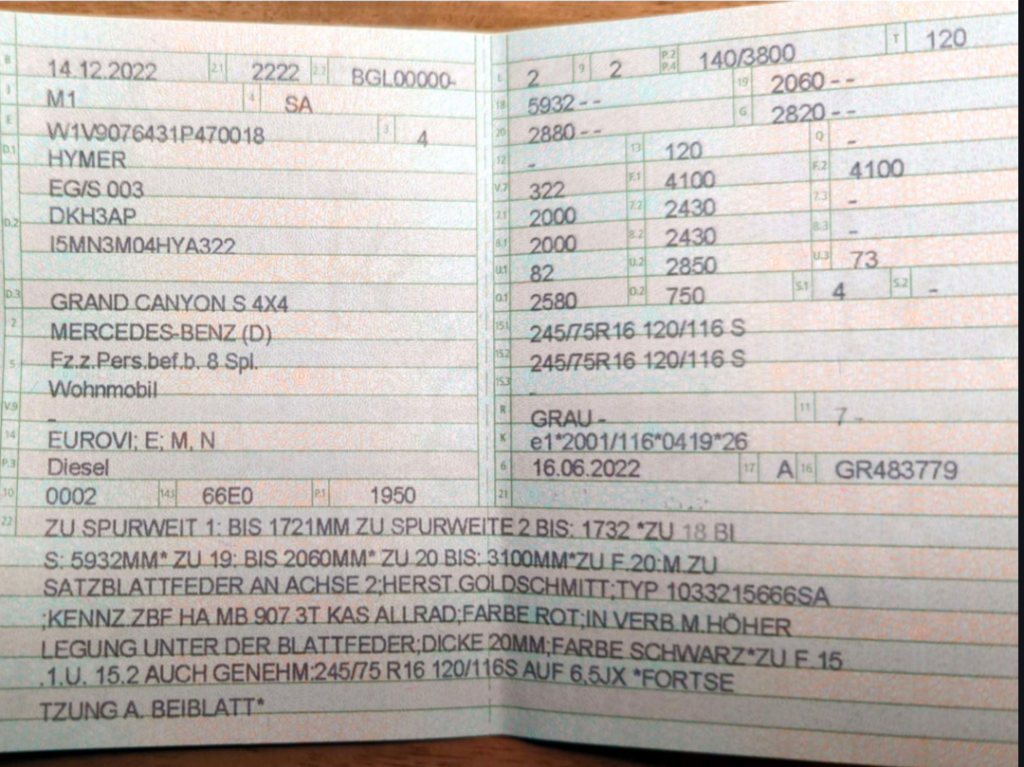 B 14.12.2022 2.1 2222 2.2 BGL00000-
J M1 4 SA
E W1V9076431P470018 3 4
D.1 HYMER
EG/S 003
D.2 DKH3AP
I5MN3M04HYA322
D.3 GRAND CANYON S 4X4
2 MERCEDES-BENZ (D)
5 Fz.z.Pers.bef.b. 8 Spl.
Wohnmobil
V.9 -
14 EUROVI; E; M, N
P.3 Diesel
10 0002 14.1 66E0 P.1 1950
L 2 9 2 P.2 P.4 140/3800 T 120
18 5932-- 19 2060--
20 2880-- G 2820--
12 - 13 120 Q -
V.7 322 F.1 4100 F.2 4100
7.1 2000 7.2 2430 7.3 -
8.1 2000 8.2 2430 8.3 -
U.1 82 U.2 2850 U.3 73
O.1 2580 O.2 750 S.1 4 S.2 -
15.1 245/75R16 120/116 S
15.2 245/75R16 120/116 S
15.3 -
R GRAU - 11 7 -
K e1*2001/116*0419*26
6 16.06.2022 17 A 16 GR483779
21
22 ZU SPURWEIT 1: BIS 1721MM ZU SPURWEITE 2 BIS: 1732 *ZU 18 BI
S: 5932MM* ZU 19: BIS 2060MM* ZU 20 BIS: 3100MM*ZU F.20:M.ZU
SATZBLATTFEDER AN ACHSE 2;HERST.GOLDSCHMITT;TYP 1033215666SA
;KENNZ.ZBF HA MB 907 3T KAS ALLRAD;FARBE ROT;IN VERB.M.HÖHER
LEGUNG UNTER DER BLATTFEDER;DICKE 20MM;FARBE SCHWARZ*ZU F.15
.1.U. 15.2 AUCH GENEHM:245/75 R16 120/116S AUF 6,5JX *FORTSE
TZUNG A. BEIBLATT*